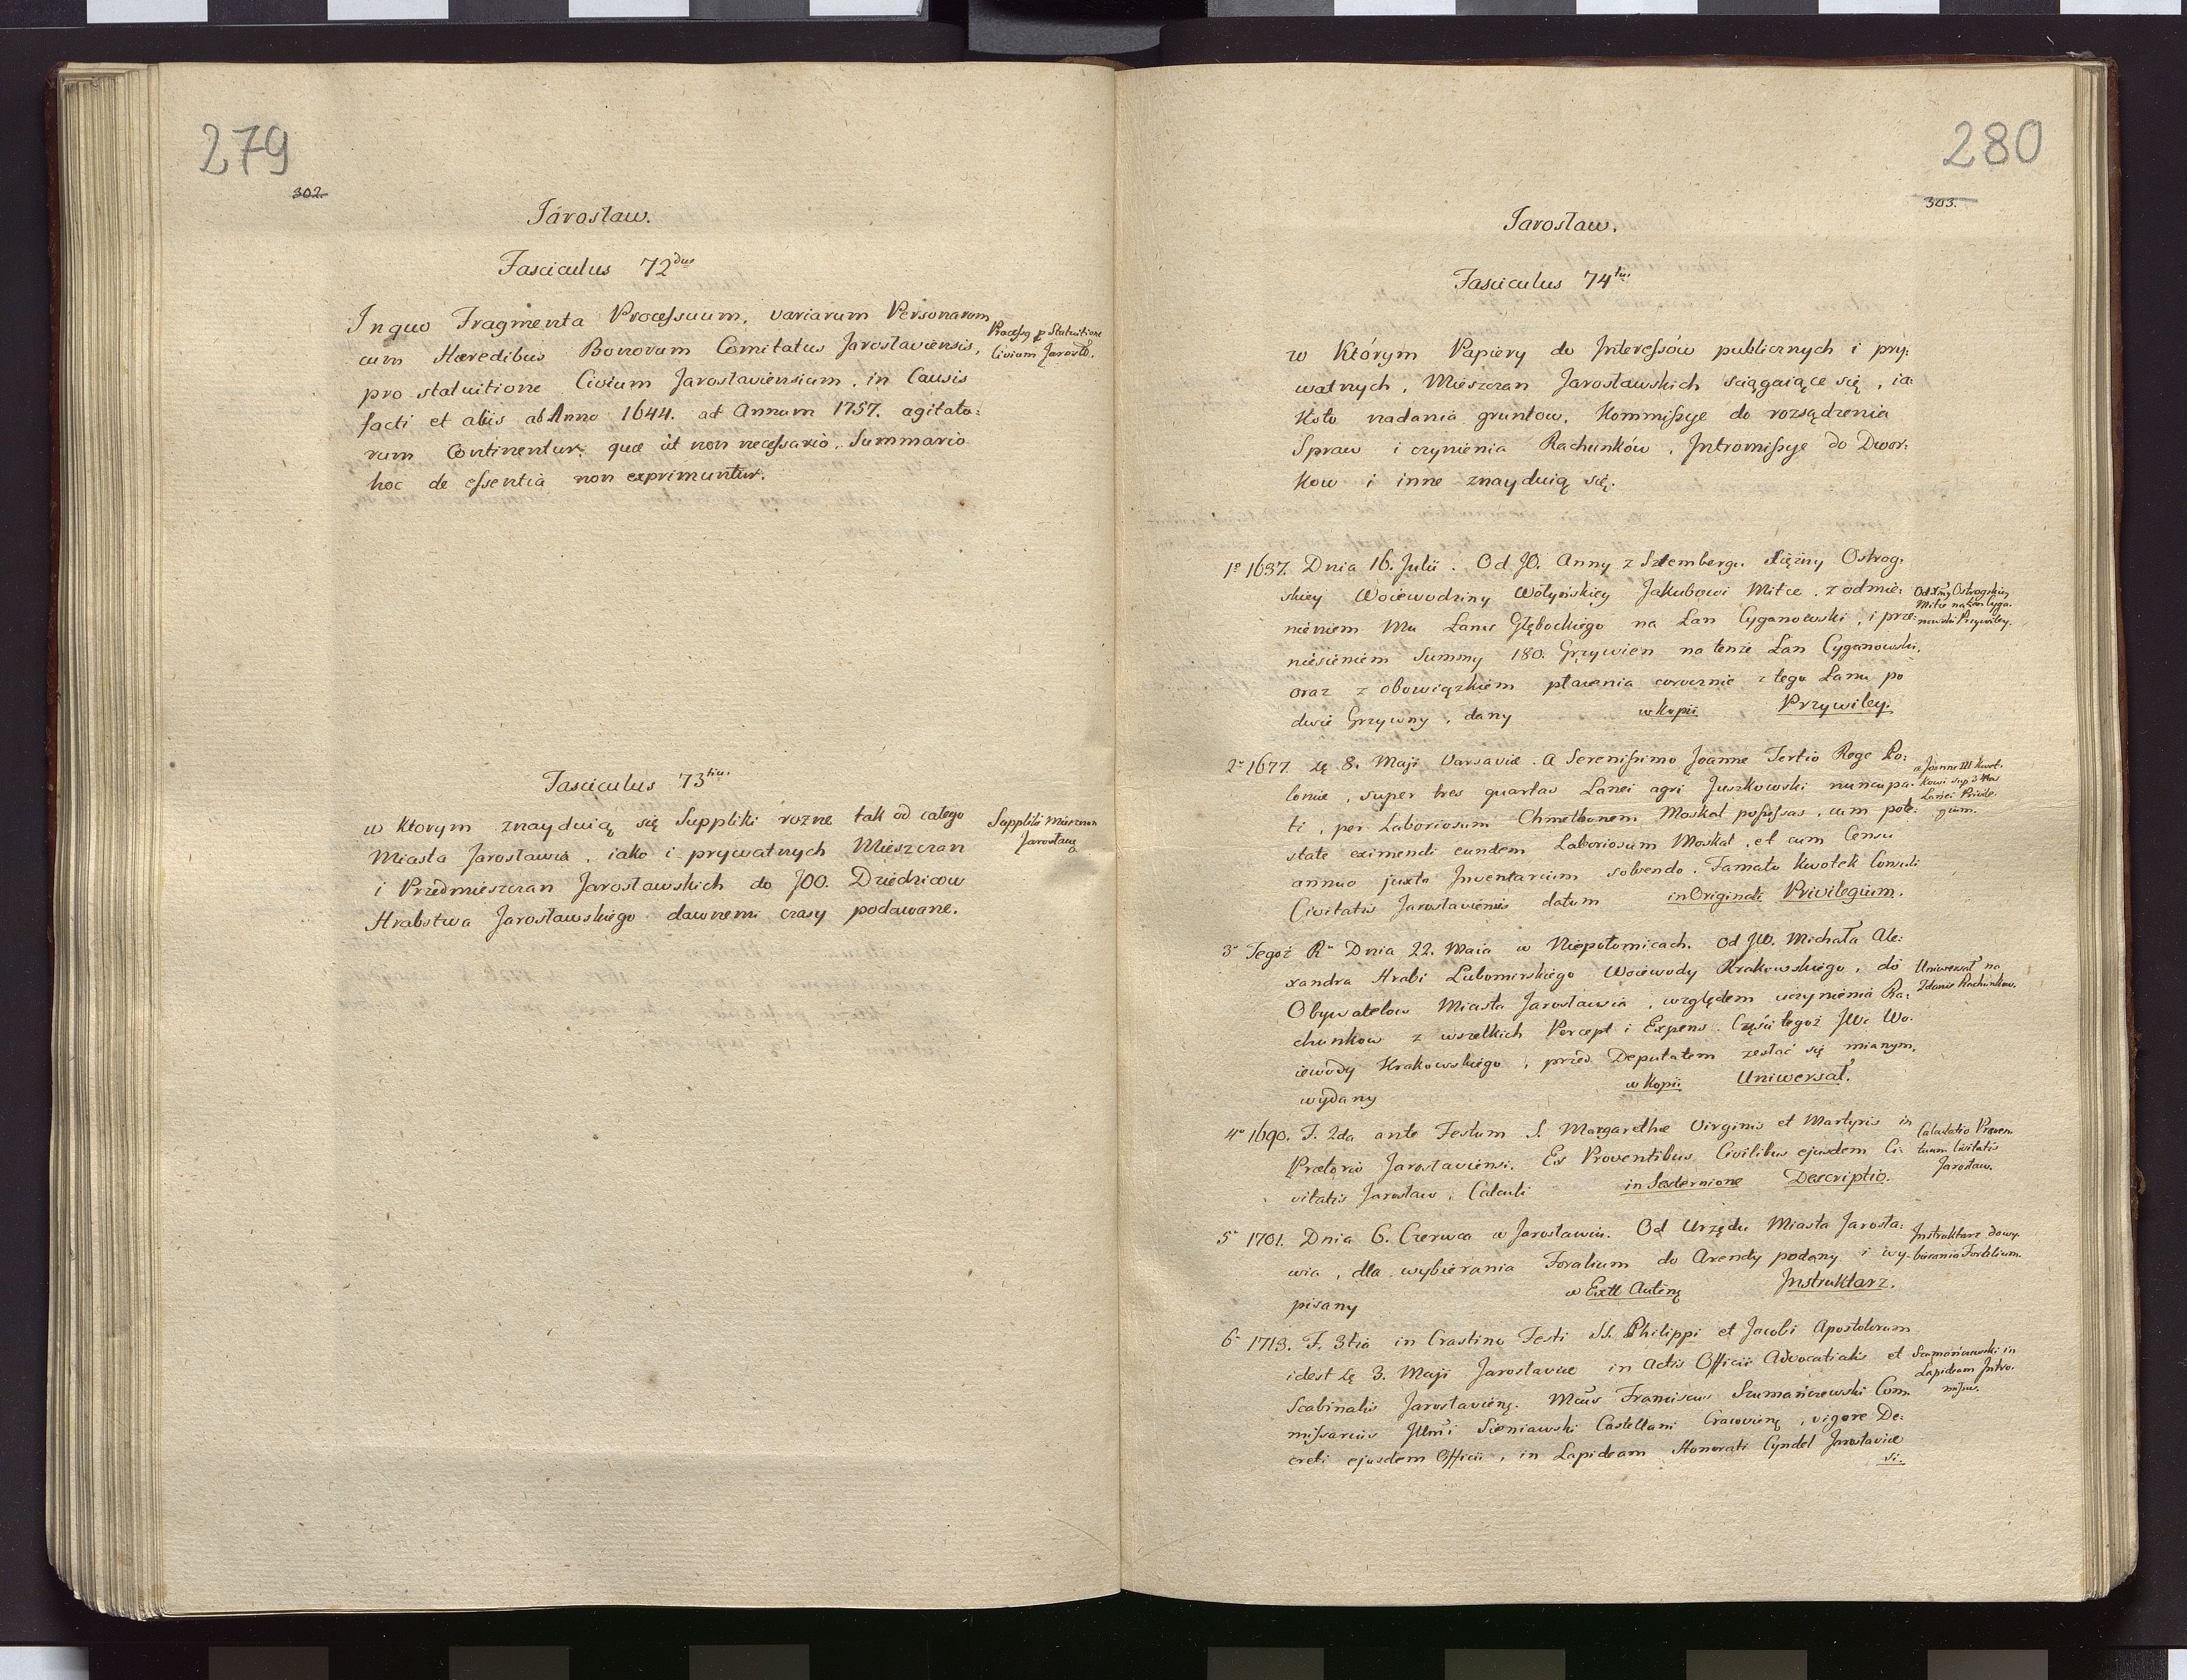 279
302.
Jarosław.
Fasciculus 72dus
In quo Fragmenta Processuum, variarum Personarum
cum Hæredibus Bonorum Comitatus Jaroslaviensis,
pro statuitione Civium Jaroslaviensium, in Causis
facti et aliis ab Anno 1644. ad Annum 1757. agitato:
rum Continentur, quæ ut non necessario, Summario
hoc de essentia non exprimuntur.
Processq p Statuitione
Civium Jarosł.
Fasciculus 73tius
w ktorym znayduią się Suppliki rozne tak od całego
Miasta Jarosławia, iako i prywatnych Mieszczan
i Przedmieszczan Jarosławskich do JOO. Dziedzicow
Hrabstwa Jarosławskiego dawnemi czasy podawane.
Suppliki Mieszczan
Jarosław
280
303.
Jarosław.
Fasciculus 74tus
w Którym Papiery do Interessów publicznych i pry:
watnych, Mieszczan Jarosławskich sciągaiące się, ia:
koto nadania gruntow, Kommissye do rozsądzenia
Spraw i czynienia Rachunków, Intromissye do Dwor:
kow i inne znayduią się.
1o 1637. Dnia 16. Julii. Od JO. Anny z Sztembergu Xiężny Ostrog:
skiey Woiewodziny Wołyńskiey Jakubowi Mitce, z odmie:
nieniem Mu Łanu Głębockiego na Łan Cyganowski, i prze:
niesieniem Summy 180. Grzywien na tenże Łan Cyganowski,
oraz z obowiązkiem płacenia corocznie z tego Łanu po
dwie Grzywny, dany w Kopii Przywiley.
Od Xny Ostrogskiey
Mitce na Łan Cyga:
nowski Przywiley.
2o 1677. 8. Maji Varsaviæ. A Serenissimo Joanne Tertio Rege Po:
loniæ, super tres quartas Lanei agri Juszkowski nuncupa:
ti, per Laboriosum Chmelhonem Moskal possessas, cum pote:
state eximendi eundem Laboriosum Moskal, et cum Censu
annuo juxta Inventarium solvendo. Famato Kwotek Consuli
Civitatis Jaroslaviensis datum in Originali Privilegium.
a Joanne III Kwot:
kowi sup 3 4tas
Lanei Privile:
gium.
3o Tegoż Ru Dnia 22. Maia w Niepołomicach. Od JW. Michała Ale:
xandra Hrabi Lubomirskiego Woiewody Krakowskiego, do
Obywatelow Miasta Jarosławia, względem uczynienia Ra:
chunkow z wszelkich Percept i Expens Części tegoż JW. Wo:
iewody Krakowskiego, przed Deputatem zesłać się mianym,
wydany w Kopii Uniwersał.
Uniwersał na
Zdanie Rachunkow.
4o 1690. F. 2da ante Festum S. Margarethæ Virginis et Martyris in
Prætorio Jaroslaviensi. Ex Proventibus Civilibus ejusdem Ci:
vitatis Jaroslaw, Calculi in Sexternione Descriptio.
Calculatio Proven:
tuum Civitatis
Jarosław.
5o 1701. Dnia 6. Czerwca w Jarosławiu. Od Urzędu Miasta Jarosła:
wia, dla wybierania Foralium do Arendy podany i wy:
pisany w Extt Auten Instruktarz.
Instruktarz do wy:
bierania Foralium.
6o 1713. F. 3tia in Crastino Festi SS. Philippi et Jacobi Apostolorum
idest 3. Maji Jaroslaviæ in Actis Officii Advocatialis et
Scabinalis Jaroslavien. Mcus Franciscus Szumańczewski Com:
missarius Illmi Sieniawski Castellani Cracovien, vigore De:
creti ejusdem Officii, in Lapideam Honorati Cyndel Jaroslaviæ
si:
Szumańczewski in
Lapideam Intro:
missus.